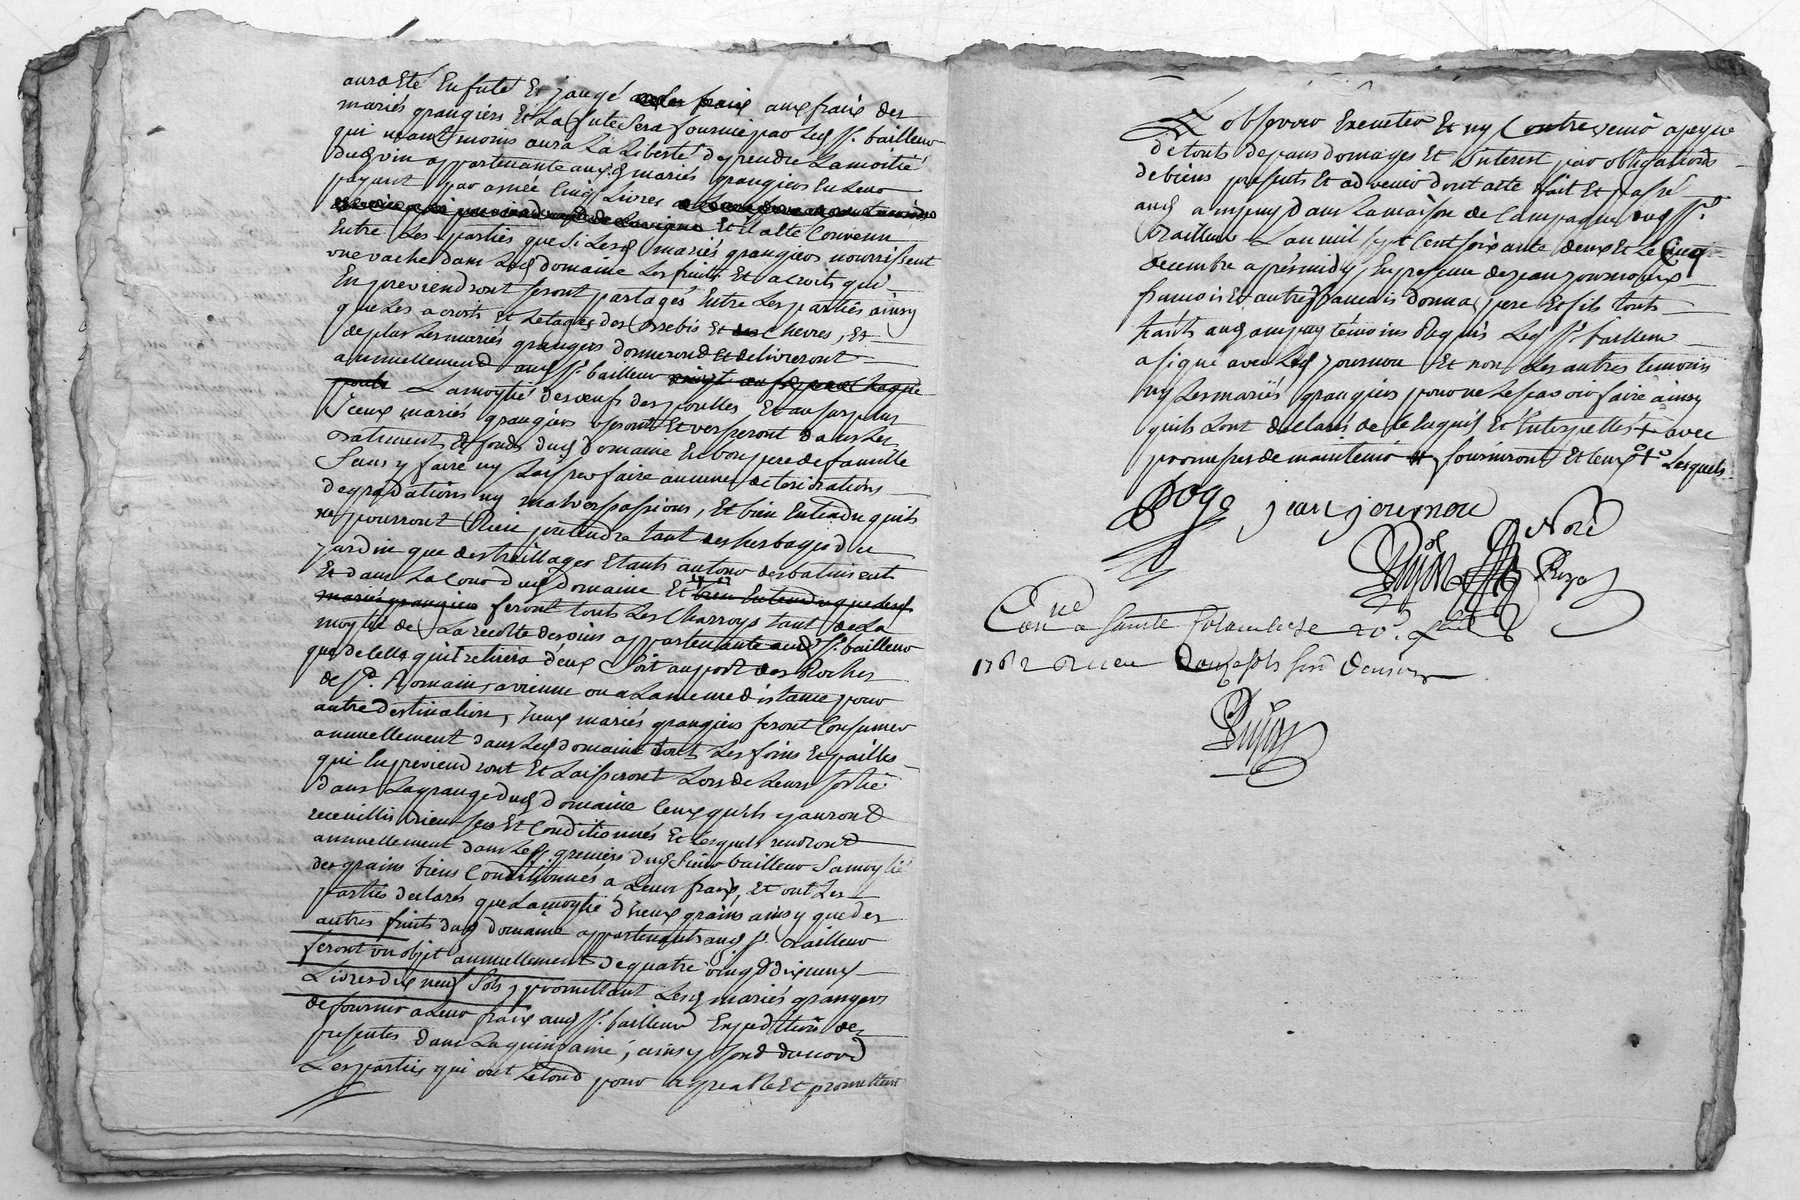 aura Eté Enfuté Et jaugé aux fraix des
mariés grangiers Et La futte Sera fournie par Led Sr. bailleur
qui neantmoins aura La Liberté de prendre La moitié
dud vin appartenante auxd mariés grangiers En Leur
payant par asnée Cinq Livres
Et il a eté Convenu
Entre Les parties que Si Lesd mariés grangiers nourrissent
une vache dans Led domaine Les fruits Et acroits qui
En proviendront seront partagés Entre Les parties ainsy
que Les acroits Et Letages des Brebis Et chevres, Et
de plus Les mariés grangiers donneront Et delivreront
annuellement aud Sr. bailleur vingt oeufs pour chaque
poule La moytié des oeufs des poulles, Et au surplus
iceux mariés grangiers useront Et verseront dans Les
batiments Et fonds dud domaine En bon pere de famille
Sans y faire ny Laisser faire aucunes deteriorations
degradations ny malversassions, Et bien Entendu quils
ne pourront Rien pretendre tant des herbages du
jardin que des treillages Etants autour des batiments
Et dans La Cour dud domaine Et bien Entendu que lesd
mariés grangiers feront touts Les Charroys tant de La
moytié de La recolte des vins appartenante aud Sr. bailleur
que de celle quil retirera d'eux Soit au port des Roches
de St. Romain, a vienne ou a La meme distance pour
autre destination, iceux mariés grangiers feront Consumer
annuellement dans Led domaine touts Les foins Et pailles
qui En proviendront Et Laisseront Lors de Leur sortie
dans La grange dud domaine Ceux quils y auront
receuillis bien secs Et Conditionnés Et Lesquels rendront
annuellement dans Les greniers dud Sieur bailleur Sa moytié
des grains biens Conditionnés a Leurs fraix, Et ont Les
parties declarés que La moytié d'iceux grains ainsy que des
autres fruits dud domaine appartenants aud Sr. Bailleur
seront un objet annuellement de quatre vingt dix neuf
Livres dix neuf Sols, promettant Lesd mariés grangers
de fournir a Leurs fraix aud Sr. bailleur Expedition des
presentes dans La quinzaine, ainsy sont d'accord
Les parties qui ont Le tout pour agreable Et promettent
L observer Executer Et ny Contrevenir a peyne
de touts depans domages Et interest par obligations
de biens presents Et advenir dont acte fait Et passé
aud ampuy dans La maison de Campagne dud Sr.
Bailleur Lan mil sept Cent soixante deux Et Le Cinq
decembre apres midy En presence de jean journoux
francois Et autre francois donna pere Et fils touts
habts aud ampuy témoins Requis Led Sr. bailleur
a signé avec Led journou Et non Les autres temoins
ny Les mariés grangiers pour ne Le scavoir faire ainsy
quils L'ont declarés de Ce Enquis Et Interpellés + avec
promesses de maintenir fourniront Et lesquels
Boge jean journou
Dujon Noré
Royal
Coné a Sainte Colombe Le 20e. Xbre
1762 Receu Douze sols six deniers
Dujon